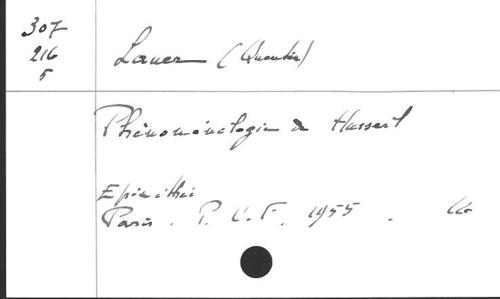 307
216
5
Lauer (Quentin)
Phénoménologie de Husserl
Epiméthée
Paris. P. U. F. 1955.